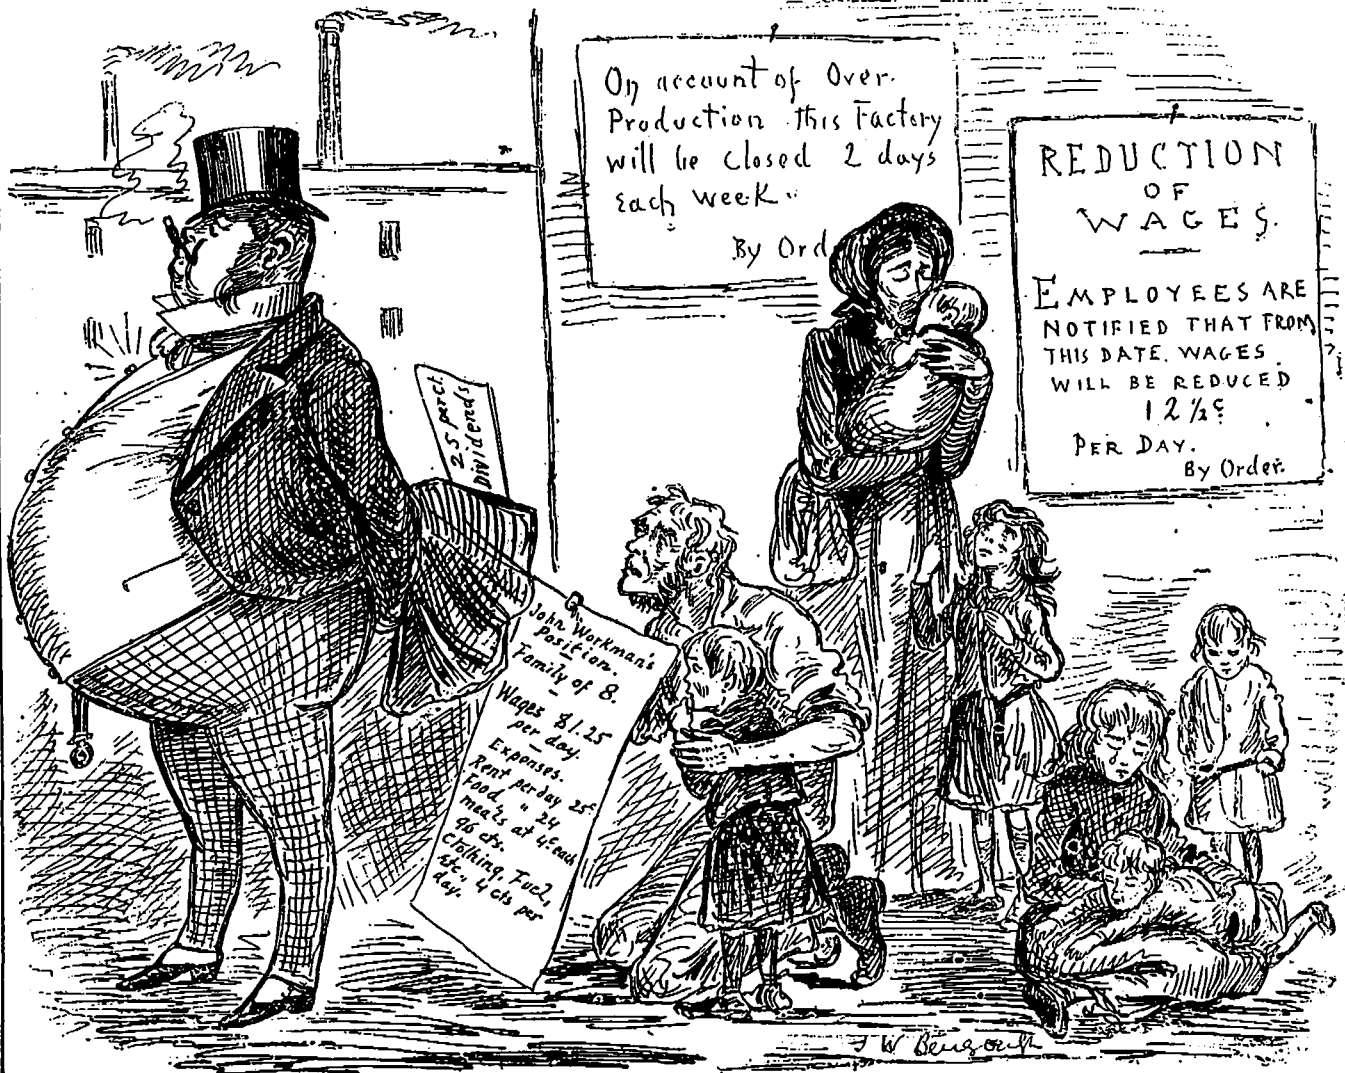 On account of Over.
Production this Factory
will be closed 2 days
each week.
By Ord
REDUCTION
OF
WAGES.
EMPLOYEES ARE
NOTIFIED THAT FROM
THIS DATE. WAGES
WILL BE REDUCED
12½¢
PER DAY.
By Order.
25 perct.
Dividends
John Workman's
Position.
Family of 8.
Wages $1.25
per day.
Expenses.
Rent per day 25¢
Food, " 24
meals at 4¢ each
96 cts.
Clothing, Fuel,
etc., 4 cts per
day.
J W Bengough